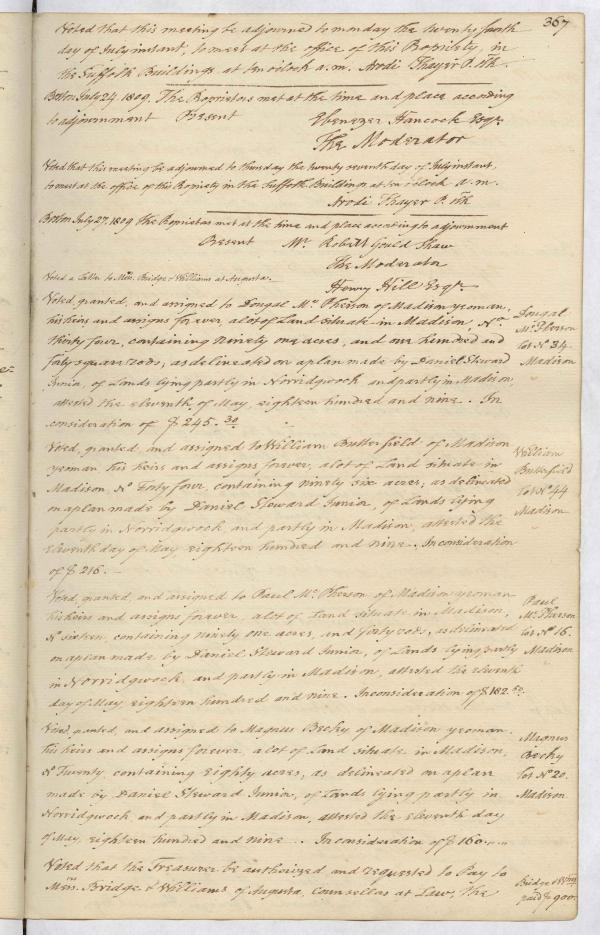 367
Voted that this meeting be adjourned to monday the twenty fourth
day of July instant, to meet at the office of this Propriety, in
the Suffolk Buildings at ten oclock a.m. Arodi Thayer P. Clk.
Boston July 24. 1809. The Proprietors met at the time and place according
to adjournment Present Ebenezer Hancock Esqr.
The Moderator
Voted that this meeting be adjourned to thursday the twenty seventh day of July instant,
to meet at the office of this Propriety in the Suffolk Buildings at ten oclock a.m.
Arodi Thayer P. Clk
Boston July 27. 1809 the Proprietors met at the time and place according to adjournment
Present Mr. Robert Gould Shaw
The Moderator
Henry Hill Esqr.
Voted a Letter to Messrs. Bridge & Williams at Augusta.
Voted, granted, and assigned to Dougal Mc.Pherson of Madison yeoman,
his heirs and assigns forever, a lot of Land situate in Madison, No.
thirty four, containing ninety one acres, and one hundred and
forty square rods, as delineated on a plan made by Daniel Steward
Junia, of Lands lying partly in Norridgwock and partly in Madison,
attested the eleventh of May, eighteen hundred and nine. In
consideration of $ 245.30
Dougal
Mc.Pherson
Lot No. 34
Madison
Voted, granted, and assigned to William Butterfield of Madison
yeoman, his heirs and assigns forever, a lot of Land situate in
Madison, No. Forty four, containing ninety six acres; as delineated
on a plan made by Daniel Steward Junior, of Lands lying
partly in Norridgwock and partly in Madison, attested the
eleventh day of May eighteen hundred and nine. In consideration
of $ 216.—
William
Butterfield
Lot No. 44
Madison
Voted, granted, and assigned to Paul Mc.Pherson of Madison yeoman
his heirs and assigns forever, a lot of Land situate in Madison,
No. sixteen, containing ninety one acres, and forty rods, as delineated
on a plan made by Daniel Steward Junior, of Lands lying partly
in Norridgwock, and partly in Madison, attested the eleventh
day of May, eighteen hundred and nine. In consideration of $ 182.50
Paul
Mc.Pherson
Lot No. 16.
Madison
Voted, granted, and assigned to Magnus Becky of Madison yeoman
his heirs and assigns forever, a lot of Land situate in Madison,
No. Twenty, containing Eighty acres, as delineated on a plan
made by Daniel Steward Junior, of Lands lying partly in
Norridgwock, and partly in Madison, attested the eleventh day
of May, eighteen hundred and nine. In consideration of $ 160.
Magnus
Becky
Lot No. 20.
Madison
Voted that the Treasurer be authorized and requested to Pay to
Messrs. Bridge & Williams of Augusta, Counsellos at Law, the
Bridge & Williams
paid $ 900.